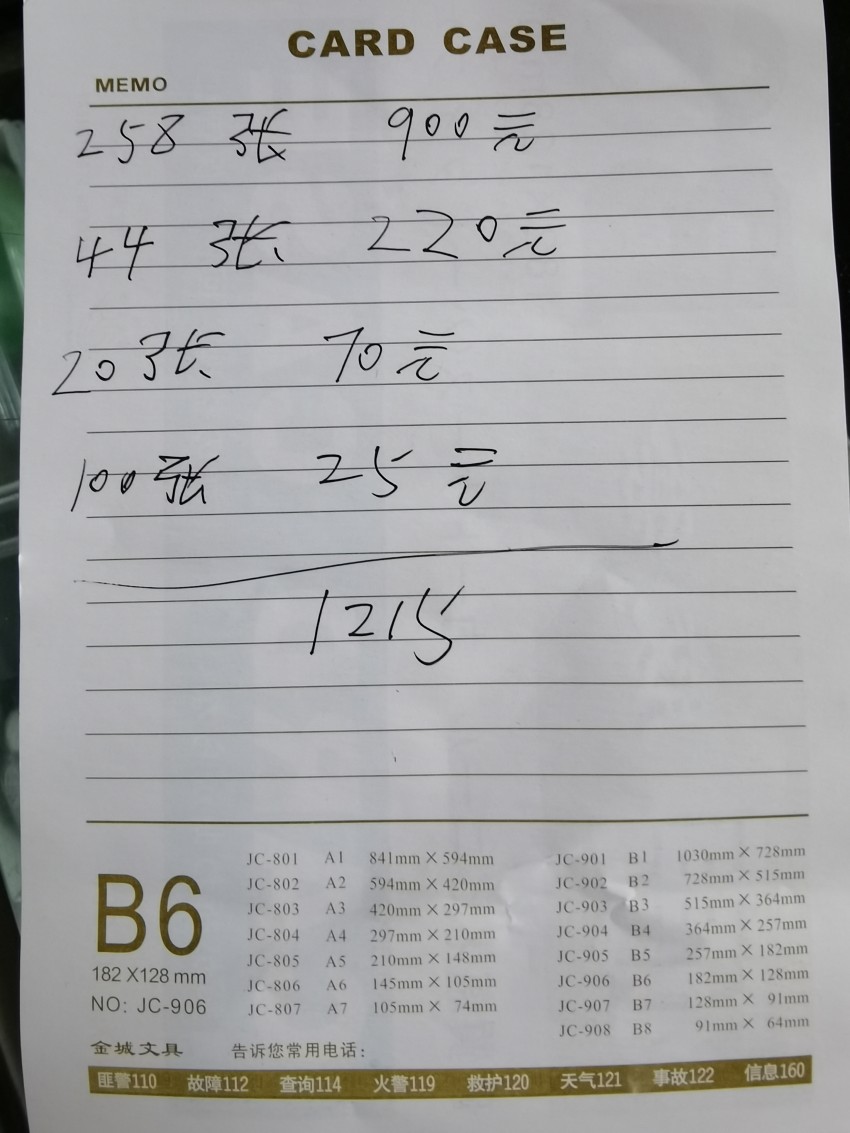 CARD CASE
MEMO
258 张 900元
44 张 220元
20张 70元
100张 25元
1215
B6
182 X128 mm
NO: JC-906
JC-801 A1 841mm × 594mm
JC-802 A2 594mm × 420mm
JC-803 A3 420mm × 297mm
JC-804 A4 297mm × 210mm
JC-805 A5 210mm × 148mm
JC-806 A6 145mm × 105mm
JC-807 A7 105mm × 74mm
JC-901 B1 1030mm × 728mm
JC-902 B2 728mm × 515mm
JC-903 B3 515mm × 364mm
JC-904 B4 364mm × 257mm
JC-905 B5 257mm × 182mm
JC-906 B6 182mm × 128mm
JC-907 B7 128mm × 91mm
JC-908 B8 91mm × 64mm
金城文具 告诉您常用电话：
匪警110 故障112 查询114 火警119 救护120 天气121 事故122 信息160